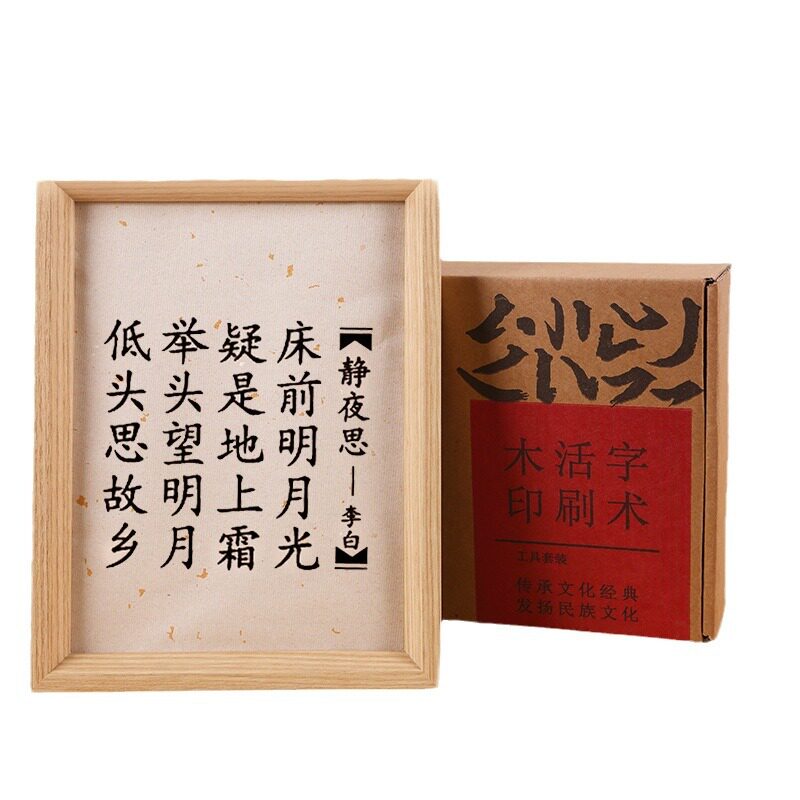 静夜思—李白
床前明月光
疑是地上霜
举头望明月
低头思故乡
木活字
印刷术
工具套装
传承文化经典
发扬民族文化